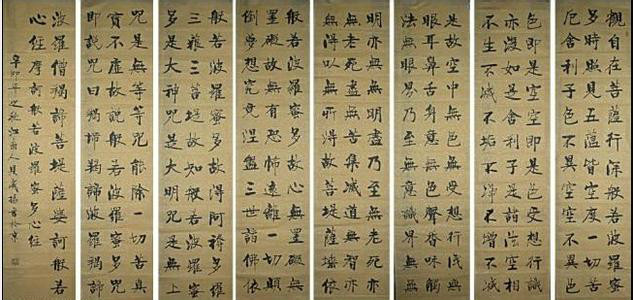 觀自在菩薩行深般若波羅蜜
多時照見五蘊皆空度一切苦
厄舍利子色不異空空不異色
色即是空空即是色受想行識
亦復如是舍利子是諸法空相
不生不滅不垢不淨不增不減
是故空中無色無受想行識無
眼耳鼻舌身意無色聲香味觸
法無眼界乃至無意識界無無
明亦無無明盡乃至無老死亦
無老死盡無苦集滅道無智亦
無得以無所得故菩提薩埵依
般若波羅蜜多故心無罣礙無
罣礙故無有恐怖遠離一切顛
倒夢想究竟涅盤三世諸佛依
般若波羅蜜多故得阿耨多羅
三藐三菩提故知般若波羅蜜
多是大神咒是大明咒是無上
咒是無等等咒能除一切苦真
實不虛故說般若波羅蜜多咒
即說咒曰揭諦揭諦波羅揭諦
波羅僧揭諦菩提薩婆訶般若
心經摩訶般若波羅蜜多心經
辛卯年之秋江南人